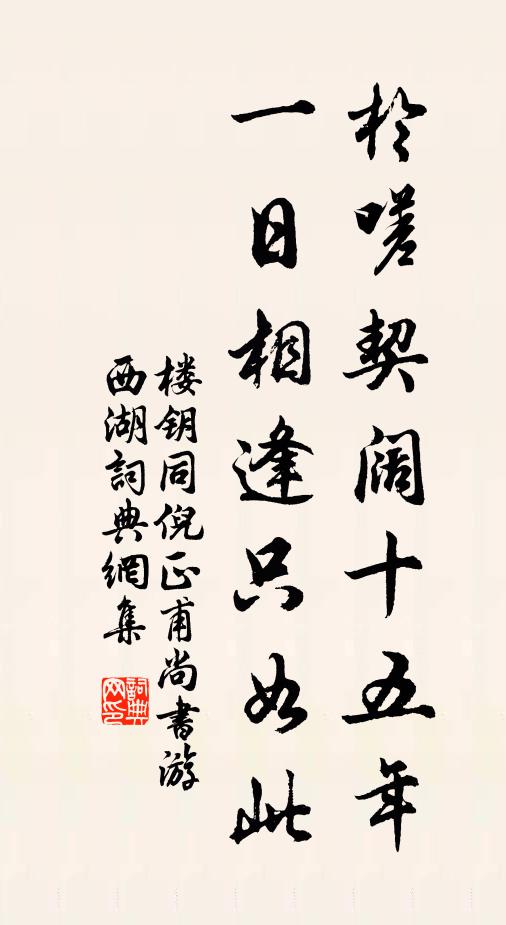 於嗟契阔十五年
一日相逢只如此
楼钥同倪正甫尚書游
西湖詞典網集
詞典网印